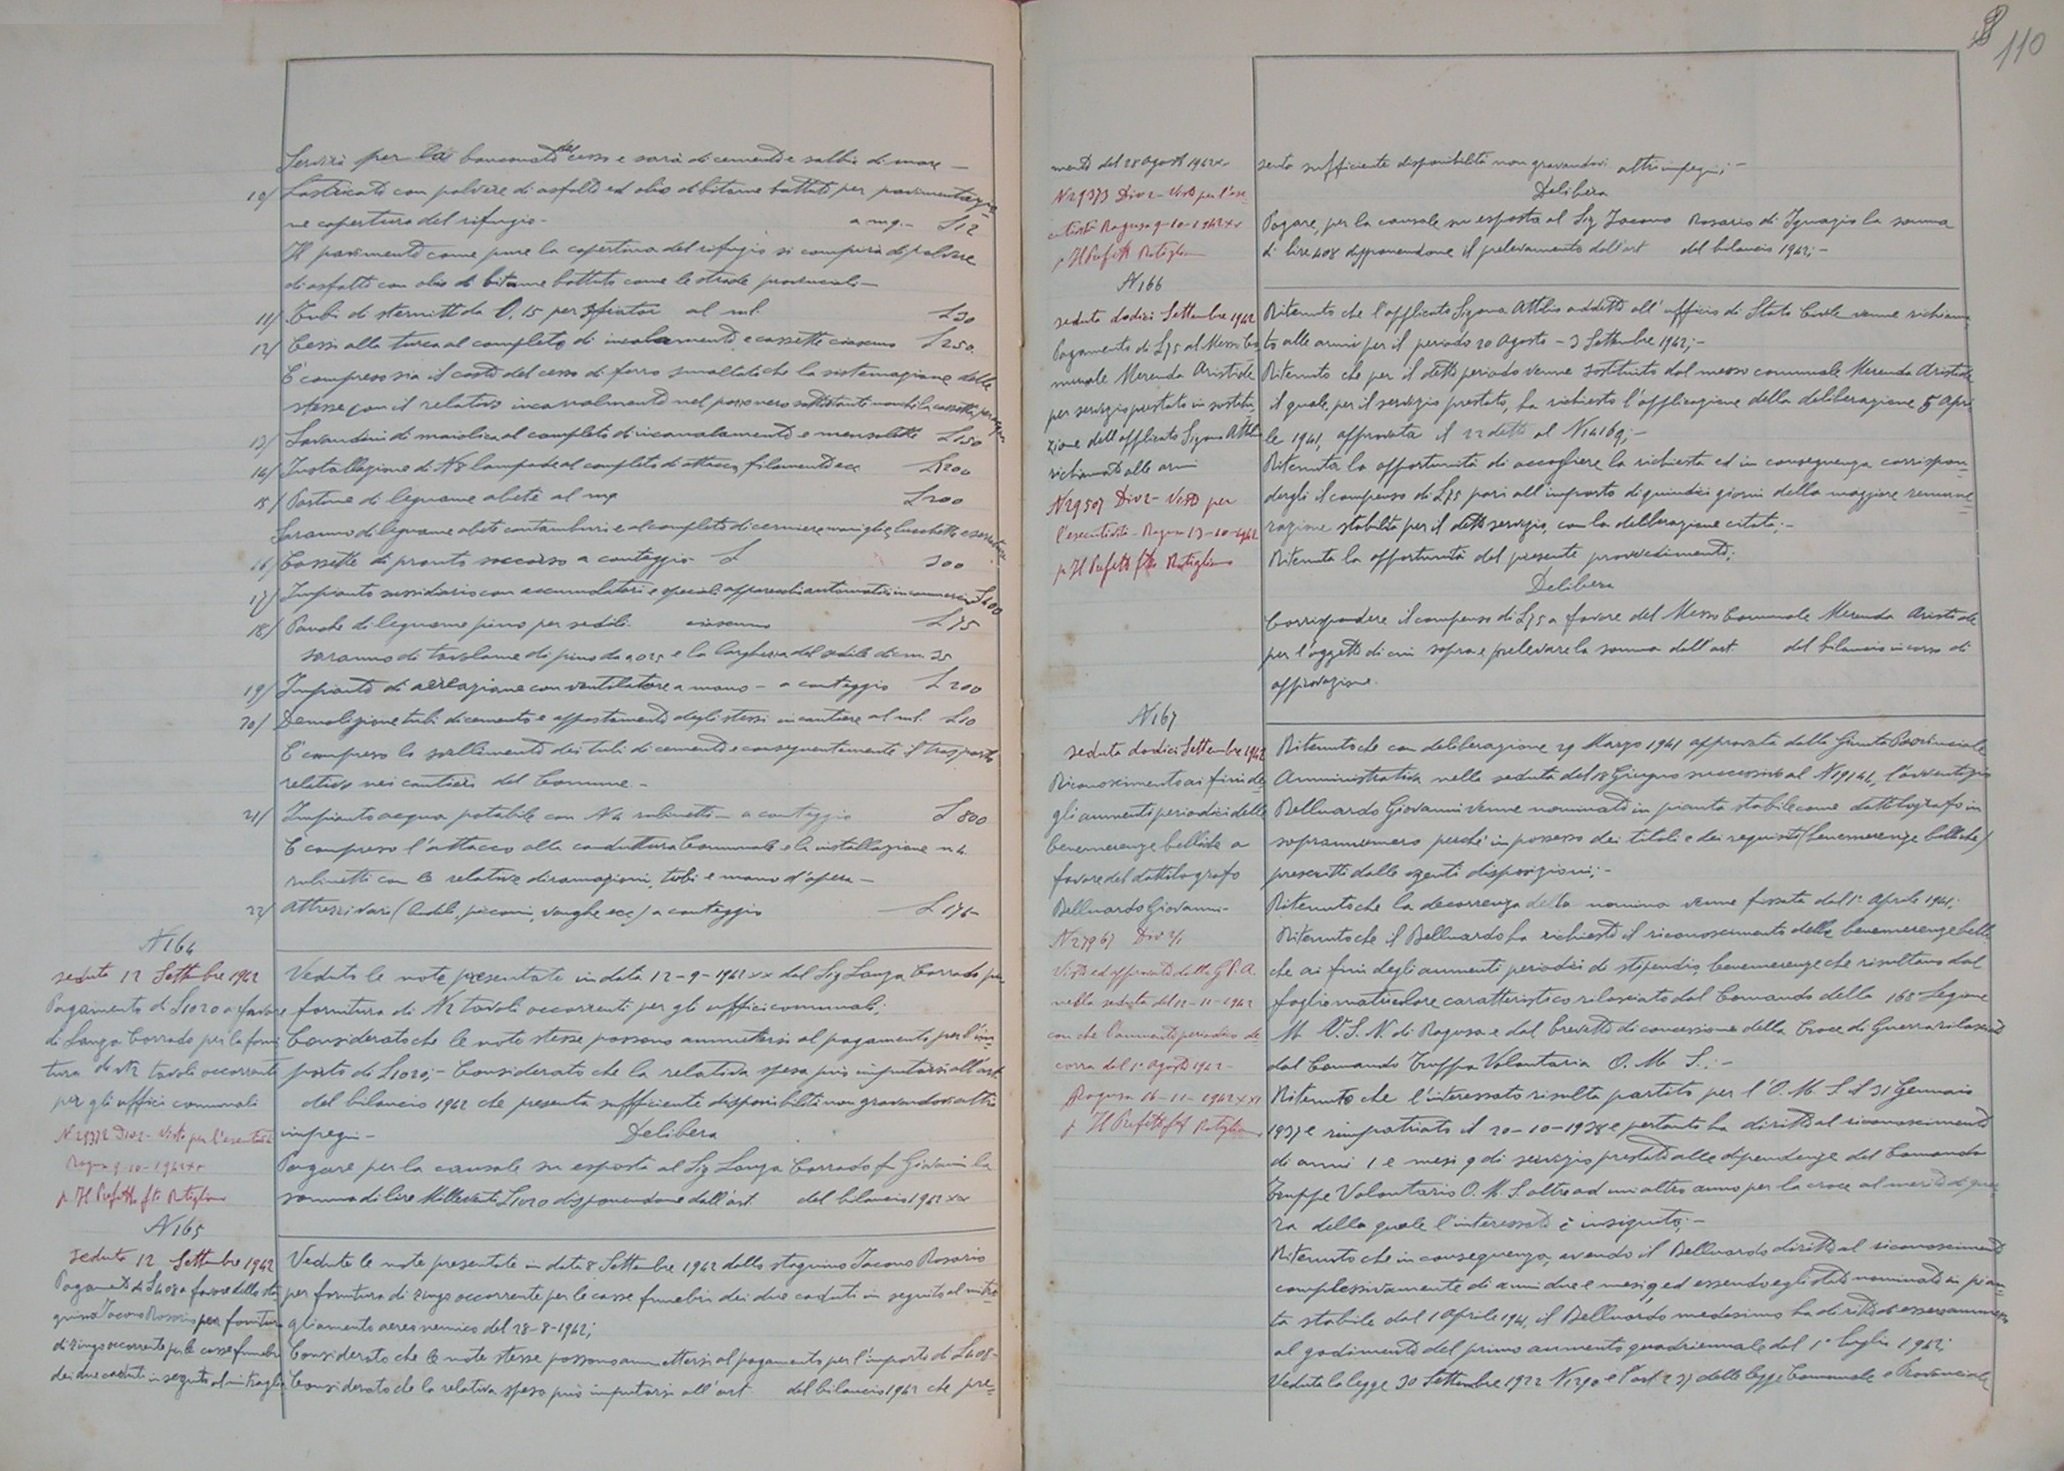 Servirà per la banconata del cesso e sarà di cemento e sabbia di mare -
10/ Lastricato con polvere di asfalto ed olio di bitume battuto per pavimentazio
ne copertura del rifugio - a mq. - £ 12
Il pavimento come pure la copertura del rifugio si compirà di polvere
di asfalto con olio di bitume battuto come le strade provinciali -
11/ Tubi di eternitt da 0.15 per sfiatoi al ml. £ 30
12/ Cessi alla turca al completo di incalamento e cassette ciascuno £ 250
E' compreso sia il costo del cesso di ferro smaltato che la sistemazione delle
stesse con il relativo incanalamento nel pozzo nero sottostante nonchè la cassetta per acqua
13/ Lavandini di maiolica al completo di incanalamento e mensolette £ 150
14/ Installazione di N 8 lampade al completo di attacco, filamento ecc £ 200
15/ Portone di legname abete al mq £ 200
Saranno di legname abete con tamburi e al completo di cerniere, maniglie, lucchetto e serrature
16/ Cassette di pronto soccorso a conteggio £ 300
17/ Impianto sussidiario con accumulatori e speciali apparecchi automatici in commercio £ 400
18/ Panche di legname pino per sedili ciascuno £ 75
saranno di tavolame di pino da 0.025 e la larghezza del sedile di cm. 35
19/ Impianto di aereazione con ventilatore a mano - a conteggio £ 200
20/ Demolizione tubi di cemento e appostamento degli stessi in cantiere al ml. £ 10
E' compreso lo smallimento dei tubi di cemento e conseguentemente il trasporto
relativo nei cantieri del Comune. -
21/ Impianto acqua potabile con N 4 rubinetti - a conteggio £ 800
E compreso l'attacco alla conduttura Comunale e la installazione n 4
rubinetti con le relative diramazioni, tubi e mano d'opera -
22/ Attrezzi vari (badili, picconi, vanghe ecc) a conteggio £ 175 -
N 164
seduta 12 Settembre 1942
Pagamento di £ 1020 a favore
di Lanza Corrado per la forni
tura di N 2 tavoli occorrenti
per gli uffici comunali
N 29372 Div 2 - Visto per l'esecutività
Ragusa 9-10-1942 xx
p Il Prefetto f.to Rutigliano
Vedute le note presentate in data 12-9-1942 xx dal Sig Lanza Corrado per
fornitura di N 2 tavoli occorrenti per gli uffici comunali;
Considerato che le note stesse possono ammettersi al pagamento per l'im-
porto di £ 1020; - Considerato che la relativa spesa può imputarsi all'art.
del bilancio 1942 che presenta sufficiente disponibilità non gravandovi altri
impegni -
Delibera
Pagare per la causale su esposta al Sig Lanza Corrado fu Giovanni la
somma di lire Milleventi £ 1020 disponendone dall'art. del bilancio 1942 xx
N 165
seduta 12 Settembre 1942
Pagamento di £ 408 a favore dello sta
gnino Iacono Rosario per fornitura
di zingo occorrente per le casse funebri
dei due caduti in seguito al mitraglia
Vedute le note presentate in data 8 Settembre 1942 dallo stagnino Iacono Rosario
per fornitura di zingo occorrente per le casse funebri dei due caduti in seguito al mitra-
gliamento aereo nemico del 28-8-1942;
Considerato che le note stesse possono ammettersi al pagamento per l'importo di £ 408 -
Considerato che la relativa spesa può imputarsi all'art del bilancio 1942 che pre-
110
mento del 28 Agosto 1942 xx
N 29373 Div 2 - Visto per l'ese
cutività Ragusa 9-10-1942 xx
p Il Prefetto Rutigliano
senta sufficiente disponibilità non gravandovi altri impegni; -
Delibera
Pagare, per la causale su esposta al Sig Iacono Rosario di Ignazio la somma
di lire 408 disponendone il prelevamento dall'art del bilancio 1942; -
N 166
seduta dodici Settembre 1942
Pagamento di £ 75 al Messo Co
munale Merenda Aristide
per servizio prestato in sostitu-
zione dell'applicato Sigona Attilio
richiamato alle armi
N 29507 Div 2 - Visto per
l'esecutività - Ragusa 13-10-1942
p Il Prefetto f.to Rutigliano
Ritenuto che l'applicato Sigona Attilio addetto all'ufficio di Stato Civile venne richiama-
to alle armi per il periodo 20 Agosto - 3 Settembre 1942; -
Ritenuto che per il detto periodo venne sostituito dal messo comunale Merenda Aristide
il quale, per il servizio prestato, ha richiesto l'applicazione della deliberazione 5 Apri
le 1941, approvata il 22 detto al N 14169; -
Ritenuta la opportunità di accogliere la richiesta ed in conseguenza corrispon-
dergli il compenso di £ 75 pari all'importo di quindici giorni della maggiore remune
razione stabilita per il detto servizio, con la deliberazione citata; -
Ritenuta la opportunità del presente provvedimento;
Delibera
Corrispondere il compenso di £ 75 a favore del Messo Comunale Merenda Aristide
per l'oggetto di cui sopra e prelevare la somma dall'art del bilancio in corso di
approvazione.
N 167
seduta dodici Settembre 1942
Riconoscimento ai fini de-
gli aumenti periodici delle
benemerenze belliche a
favore del dattilografo
Belluardo Giovanni -
N 27967 Div 2/1
Visto ed approvato dalla G.P.A.
nella seduta del 12-11-1942
con che l'aumento periodico de
corra dal 1° Agosto 1942 -
Ragusa 16-11-1942 xxi
p Il Prefetto f.to Rutigliano
Ritenuto che con deliberazione 29 Marzo 1941 approvata dalla Giunta Provinciale
Amministrativa nella seduta del 18 Giugno successivo al N 19141, l'avventizio
Belluardo Giovanni venne nominato in pianta stabile come dattilografo in
soprannumero perchè in possesso dei titoli e dei requisiti (benemerenze belliche)
prescritti dalle vigenti disposizioni; -
Ritenuto che la decorrenza della nomina venne fissata dal 1° Aprile 1941;
Ritenuto che il Belluardo ha richiesto il riconoscimento delle benemerenze belli
che ai fini degli aumenti periodici di stipendio, benemerenze che risultano dal
foglio matricolare caratteristico rilasciato dal Comando della 168 Legione
M. V. S. N. di Ragusa e dal brevetto di concessione della Croce di Guerra rilasciato
dal Comando Truppa Volontaria O. M. S.: -
Ritenuto che l'interessato risulta partito per l'O. M. S. il 31 Gennaio
1937 e rimpatriato il 20-10-1938 e pertanto ha diritto al riconoscimento
di anni 1 e mesi 9 di servizio prestato alle dipendenze del Comando
Truppe Volontario O. M. S. oltre ad un altro anno per la croce al merito di guer
ra della quale l'interessato è insignito; -
Ritenuto che in conseguenza, avendo il Belluardo diritto al riconoscimento
complessivamente di anni due e mesi 9 ed essendo egli stato nominato in pian-
ta stabile dal 1 Aprile 1941, il Belluardo medesimo ha diritto di essere ammesso
al godimento del primo aumento quadriennale dal 1° luglio 1942;
Veduta la legge 30 Settembre 1922 N 1290 e l'art 237 della legge Comunale e Provinciale